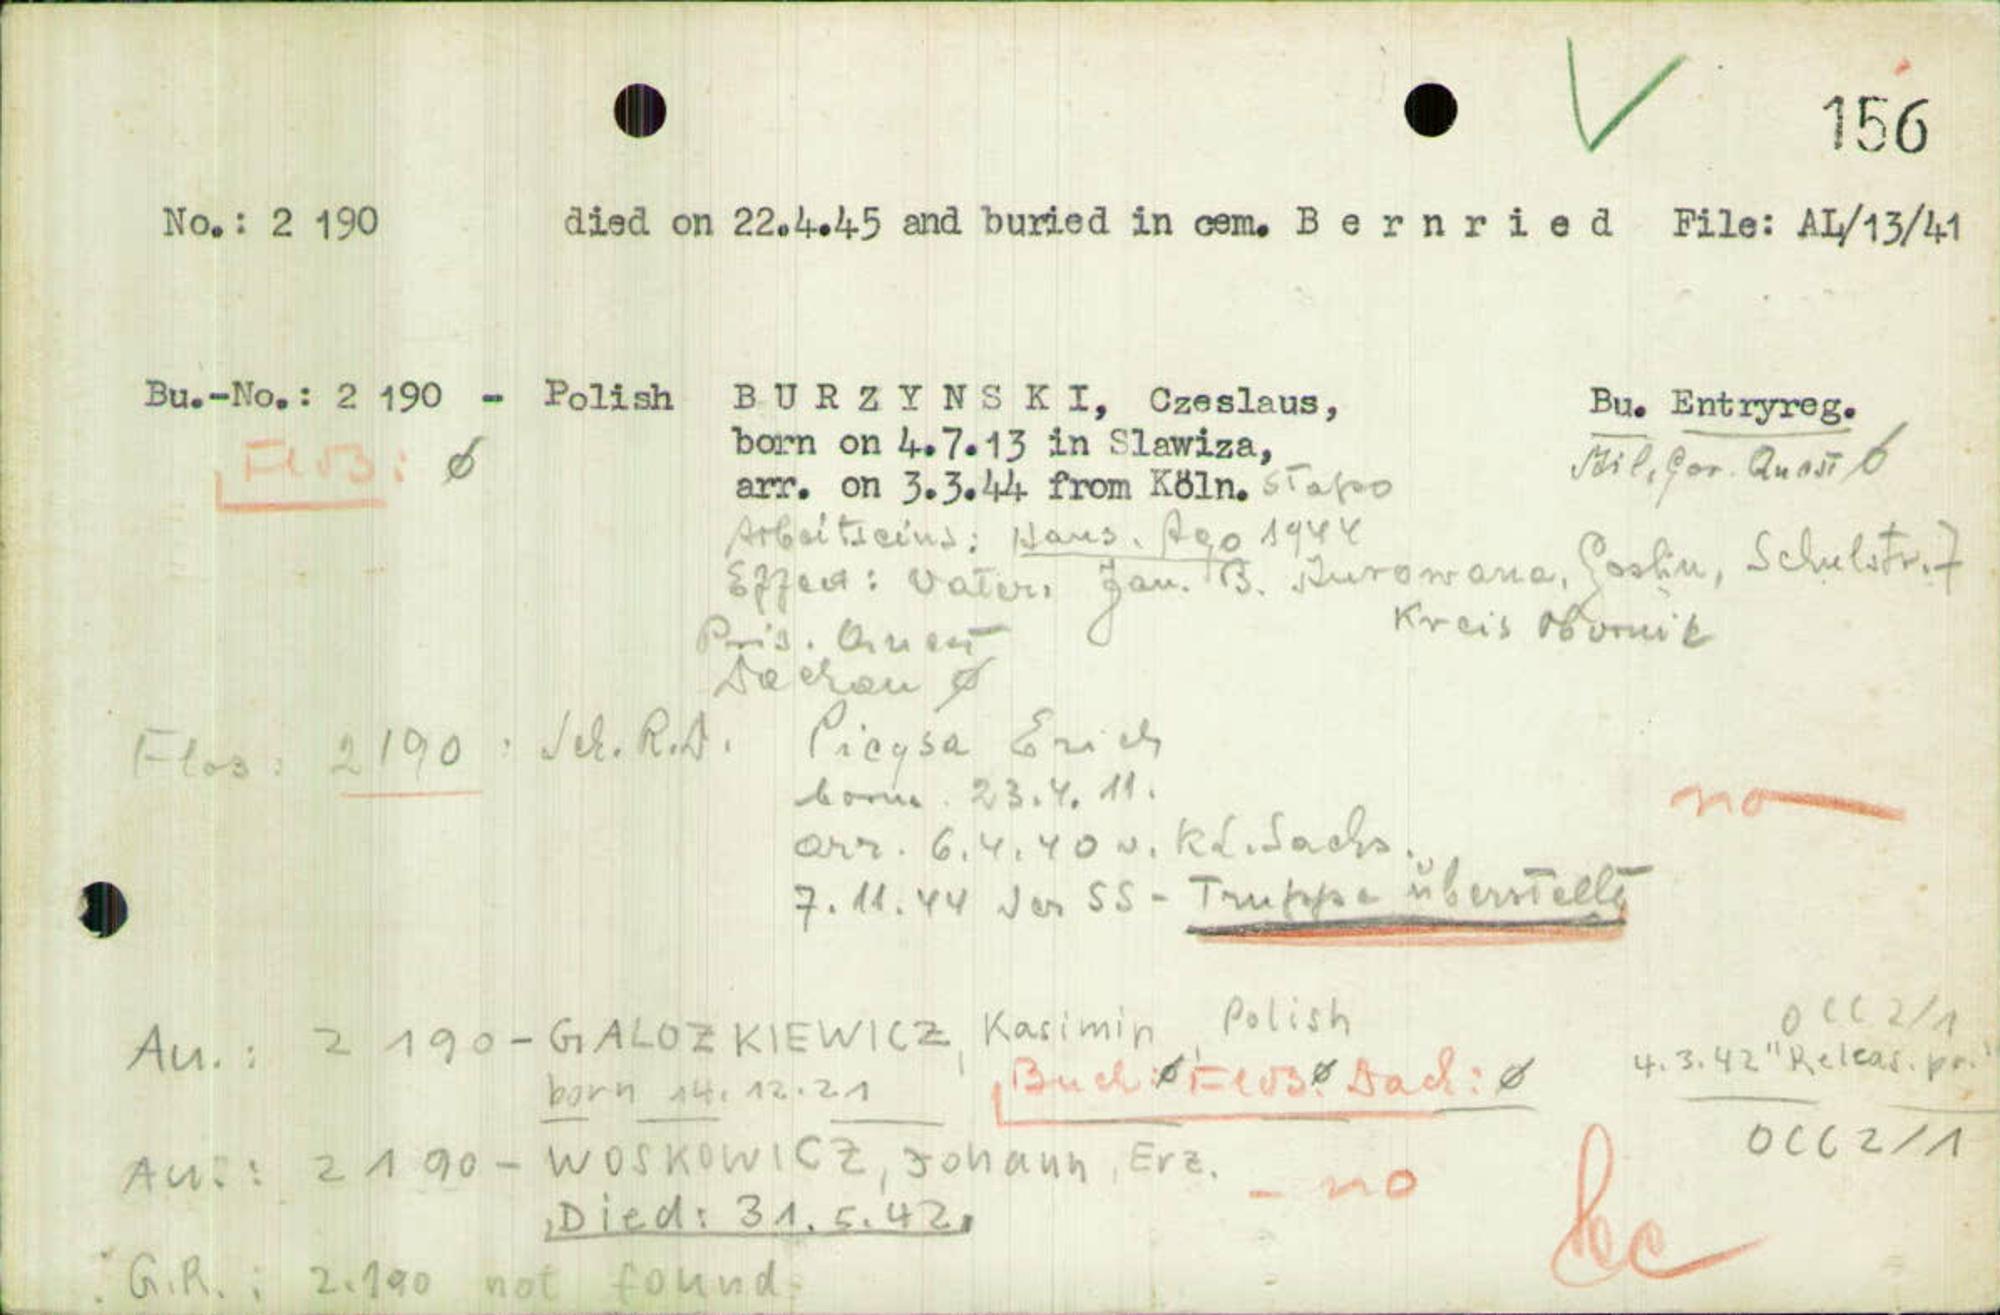 156
No.: 2 190 died on 22.4.45 and buried in cem. B e r n r i e d File: AL/13/41
Bu.-No.: 2 190 - Polish B U R Z Y N S K I, Czeslaus, Bu. Entryreg.
born on 4.7.13 in Slawiza,
Floß: ø Mil. Gov. Quest ø
arr. on 3.3.44 from Köln. Stapo
Arbeitseins: Hans. Ago 1944
Effect: Vater, Jan. B. Goslin, Schulstr. 7
Kreis Obornik
Pris. Quest
Dachau ø
Flos: 2190: Sch. R.D. Erich
born 23.4.11. no
arr. 6.4.40 v. KL. Sachs.
7.11.44 der SS-Truppe überstellt
OCC 2/1
Au.: 2 190 - GALOZKIEWICZ, Kasimir, Polish
4.3.42 "Releas. pr."
born 14.12.21 Buch: ø Floß: ø Dach: ø
OCC 2/1
Au.: 2 190 - WOSKOWICZ, Johann, Erz. - no
Died: 31.5.42.
G.R.: 2.190 not found